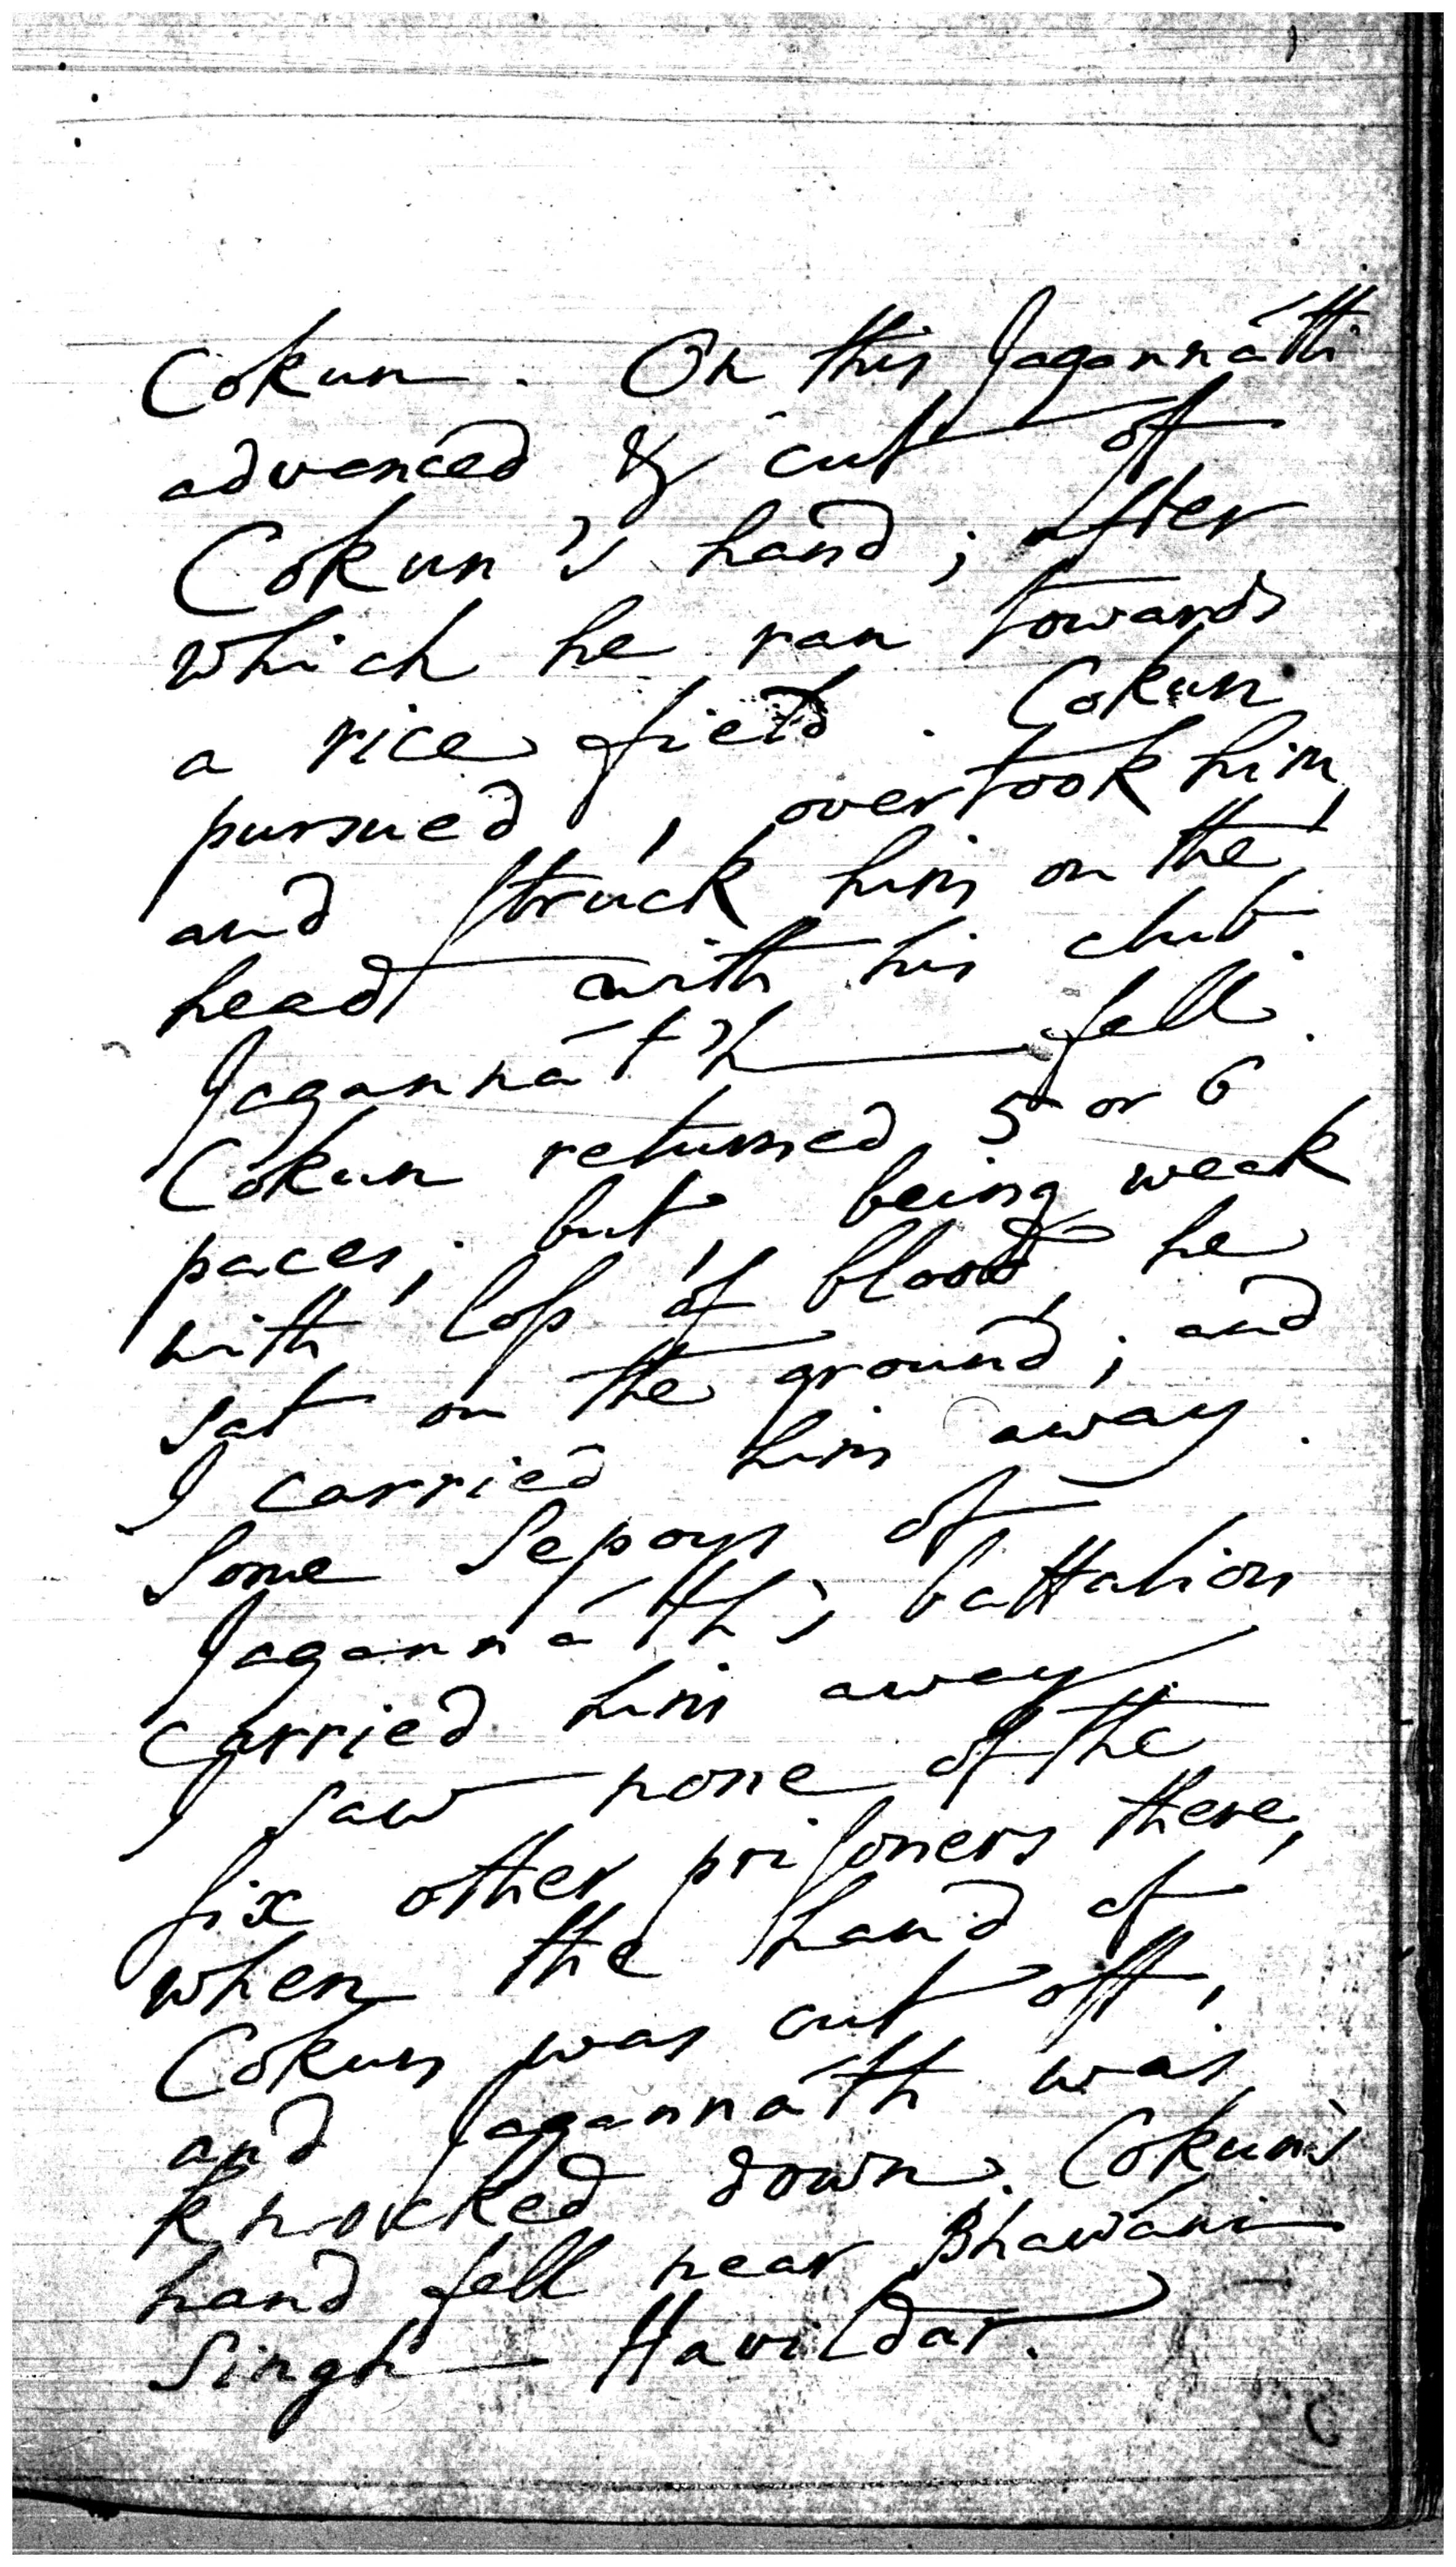 Cokun. On this Jagannáth
advanced & cut of
Cokun's hand; after
which he ran towards
a rice field. Cokun
pursued, overtook him,
and struck him on the
head with his club.
Jagannáth fell.
Cokun returned 5 or 6
paces; but, being weak
with loss of blood, he
sat on the ground; and
I carried him away.
Some Sepoys of
Jagannáth's battalion
carried him away
I saw none of the
six other prisoners there,
when the hand of
Cokun was cut off,
and Jagannáth was
knocked down. Cokun's
hand fell near Bhawáni
Singh Havildar.